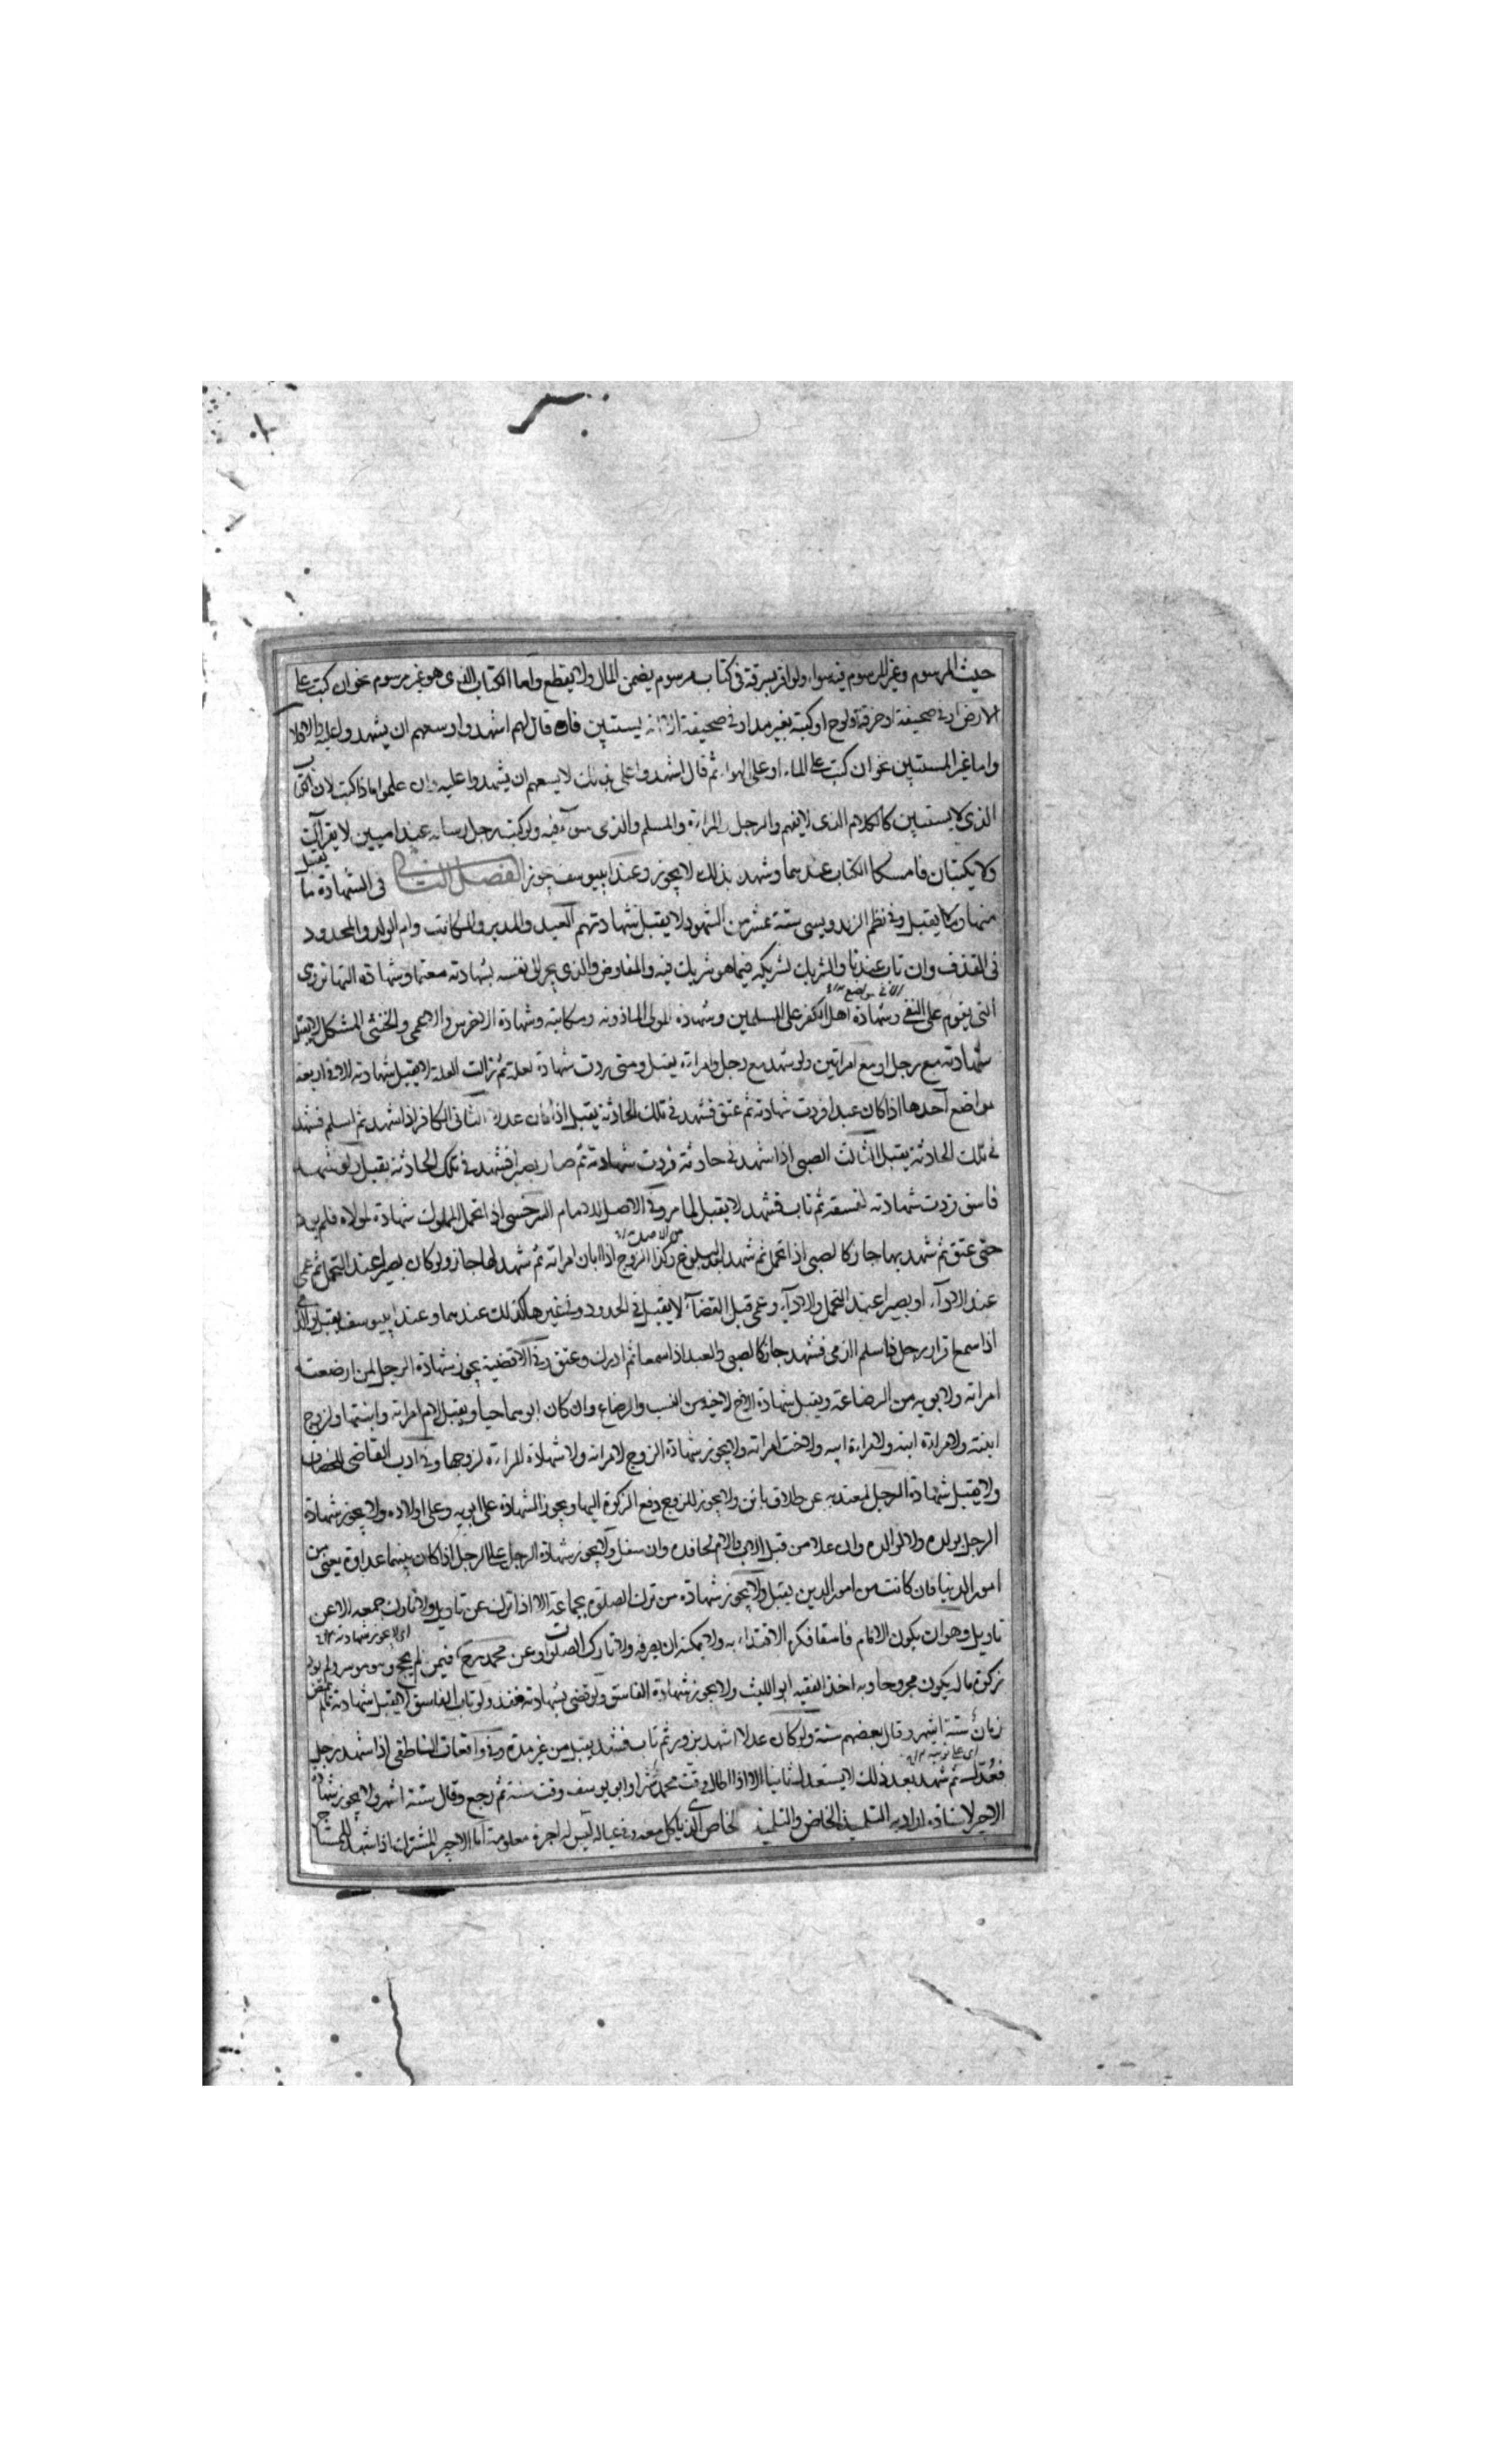 حيث المرسوم وغير المرسوم فيه سواء ولو اقر بسرقة فى كتاب مرسوم يضمن المال ولا يقطع واما الكتاب الذى هو غير مرسوم نحو ان كتب على
الارض او فى صحيفة او خرقة او لوح او كتبه بغير مداد فى صحيفة الا انه يستبين فان قال لهم اشهدوا وسعهم ان يشهدوا عليه والا فلا
واما غير المستبين نحو ان كتب على الماء او على الهواء ثم قال اشهدوا على بذلك لا يسعهم ان يشهدوا عليه وان علموا ماذا كتب لان الكتاب
الذى لا يستبين كالكلام الذى لا يفهم والرجل والمراة والمسلم والذمى سواء فيه ولو كتب رجل رسالة عند اميين لا يقرآن
ولا يكتبان فامسكا الكتاب عندهما وشهدا بذلك لا يجوز وعند ابييوسف يجوز الفصل الثانى فى الشهادة ما يقبل
منها وما لا يقبل وفى نظم الزندويسى ستة عشر من الشهود لا يقبل شهادتهم العبد والمدبر والمكاتب وام الولد والمحدود
فى القذف وان تاب عندنا والشريك لشريكه فيما هو شريك فيه والمفاوض والذى يجر الى نفسه بشهادته مغنما وشهادة
التى يقوم على النفى وشهادة اهل الكفر على المسلمين وشهادة المولى لماذونه ومكاتبه وشهادة الاخرس والاعمى والخنثى المشكل لا يقبل
شهادته مع رجل او مع امراتين ولو شهد مع رجل وامراة يقبل ومتى ردت شهادة لعلة ثم زالت العلة لا يقبل شهادته الا فى اربعة
مواضع احدها اذا كان عبدا فردت شهادته ثم عتق فشهد فى تلك الحادثة يقبل اذا كان عدلا الثانى الكافر اذا شهد ثم اسلم فشهد
فى تلك الحادثة يقبل الثالث الصبى اذا شهد فى حادثة فردت شهادته ثم صار بصيرا فشهد فى تلك الحادثة يقبل ولو شهد
فاسق فردت شهادته لفسقه ثم تاب فشهد لا يقبل لما مر وفى الاصل للامام السرخسى اذا تحمل المملوك شهادة لمولاه فلم
حتى عتق ثم شهد بها جاز كالصبى اذا تحمل ثم شهد بعد البلوغ وكذا الزوج اذا ابان امراته ثم شهد لها جاز ولو كان بصيرا عند التحمل ثم عمى
عند الاداء او بصيرا عند التحمل والاداء وعمى قبل القضاء لا يقبل فى الحدود وفى غيرها كذلك عندهما وعند ابييوسف يقبل
اذا سمع اقرار رجل فاسلم الذمى فشهد جاز كالصبى والعبد اذا سمعا ثم ادرك وعتق وفى الاقضية يجوز شهادة الرجل لمن ارضعته
امراته ولابويه من الرضاعة ويقبل شهادة الاخ لاخيه من النسب والرضاع وان كان ابوهما حيا ويقبل لام امراته وابنتها ولزوج
ابنته ولامراة ابنه ولامراة ابيه ولاخت امراته ولا يجوز شهادة الزوج لامراته ولا شهادة المراة لزوجها وفى ادب القاضى للخصاف
ولا يقبل شهادة الرجل لمعتدته عن طلاق بائن ولا يجوز للزوج دفع الزكوة اليها ويجوز الشهادة على ابويه وعلى اولاده ولا يجوز شهادة
الرجل لولده ولا لوالده وان علا من قبل الاب والام لحافده وان سفل ولا يجوز شهادة الرجل على الرجل اذا كان بينهما عداوة يعنى من
امور الدنيا فان كانت من امور الدين يقبل ولا يجوز شهادة من ترك الصلوة بجماعة الا اذا ترك عن تاويل ولا تارك جمعة الا عن
تاويل وهو ان يكون الامام فاسقا فكره الاقتداء به ولا يمكنه ان يصرفه ولا تارك الصلوات وعن محمد رح فيمن لم يحج وهو موسر ولم يود
زكوة ماله يكون مجروحا وبه اخذ الفقيه ابو الليث ولا يجوز شهادة الفاسق ولو قضى بشهادته نفذ ولو تاب الفاسق لا يقبل شهادته ما لم يمض
زمان ستة اشهر وقال بعضهم سنة ولو كان عدلا شهد بزور ثم تاب فشهد يقبل من غير مدة وفى واقعات الناطفى اذا شهد رجل
فعدّل ثم شهد بعد ذلك لا يستعدل ثانيا الا اذا طال وقت محمد شهرا وابو يوسف وقت سنة ثم رجع وقال ستة اشهر ولا يجوز شهادة
الاجير لاستاذه اراد به التلميذ الخاص والتلميذ الخاص الذى ياكل معه وفى عياله ليس له اجرة معلومة اما الاجير المشترك اذا شهد للمستاجر